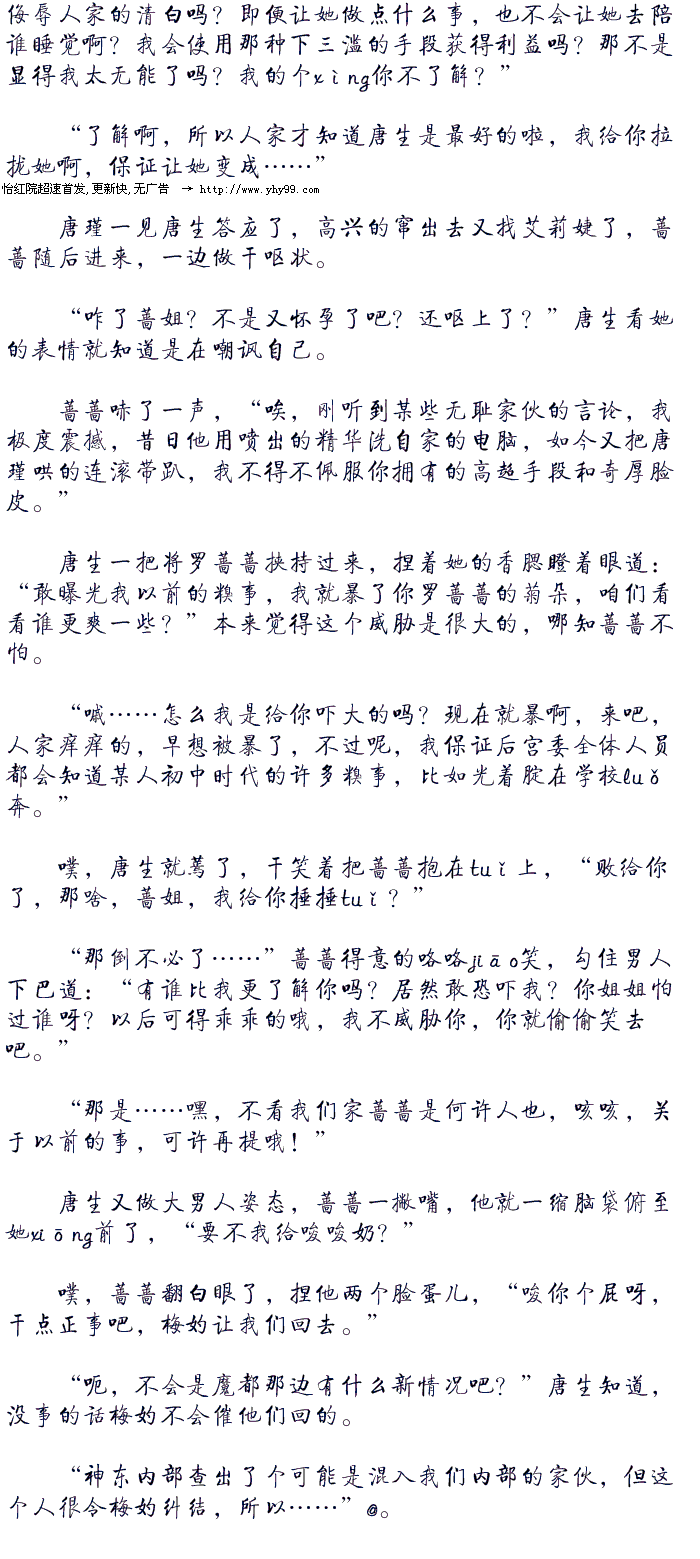 侮辱人家的清白吗？即便让她做点什么事，也不会让她去陪
谁睡觉啊？我会使用那种下三滥的手段获得利益吗？那不是
显得我太无能了吗？我的个xìng你不了解？”
“了解啊，所以人家才知道唐生是最好的啦，我给你拉
拢她啊，保证让她变成……”
怡红院超速首发,更新快,无广告 → http://www.yhy99.com
唐瑾一见唐生答应了，高兴的窜出去又找艾莉婕了，蔷
蔷随后进来，一边做干呕状。
“咋了蔷姐？不是又怀孕了吧？还呕上了？”唐生看她
的表情就知道是在嘲讽自己。
蔷蔷哧了一声，“唉，刚听到某些无耻家伙的言论，我
极度震撼，昔日他用喷出的精华洗自家的电脑，如今又把唐
瑾哄的连滚带趴，我不得不佩服你拥有的高超手段和奇厚脸
皮。”
唐生一把将罗蔷蔷挟持过来，捏着她的香腮瞪着眼道：
“敢曝光我以前的糗事，我就暴了你罗蔷蔷的菊朵，咱们看
看谁更爽一些？”本来觉得这个威胁是很大的，哪知蔷蔷不
怕。
“嘁……怎么我是给你吓大的吗？现在就暴啊，来吧，
人家痒痒的，早想被暴了，不过呢，我保证后宫委全体人员
都会知道某人初中时代的许多糗事，比如光着腚在学校luǒ
奔。”
噗，唐生就蔫了，干笑着把蔷蔷抱在tuǐ上，“败给你
了，那啥，蔷姐，我给你捶捶tuǐ？”
“那倒不必了……”蔷蔷得意的咯咯jiāo笑，勾住男人
下巴道：“有谁比我更了解你吗？居然敢恐吓我？你姐姐怕
过谁呀？以后可得乖乖的哦，我不威胁你，你就偷偷笑去
吧。”
“那是……嘿，不看我们家蔷蔷是何许人也，咳咳，关
于以前的事，可许再提哦！”
唐生又做大男人姿态，蔷蔷一撇嘴，他就一缩脑袋俯至
她xiōng前了，“要不我给唆唆奶？”
噗，蔷蔷翻白眼了，捏他两个脸蛋儿，“唆你个屁呀，
干点正事吧，梅妁让我们回去。”
“呃，不会是魔都那边有什么新情况吧？”唐生知道，
没事的话梅妁不会催他们回的。
“神东内部查出了个可能是混入我们内部的家伙，但这
个人很令梅妁纠结，所以……”@。